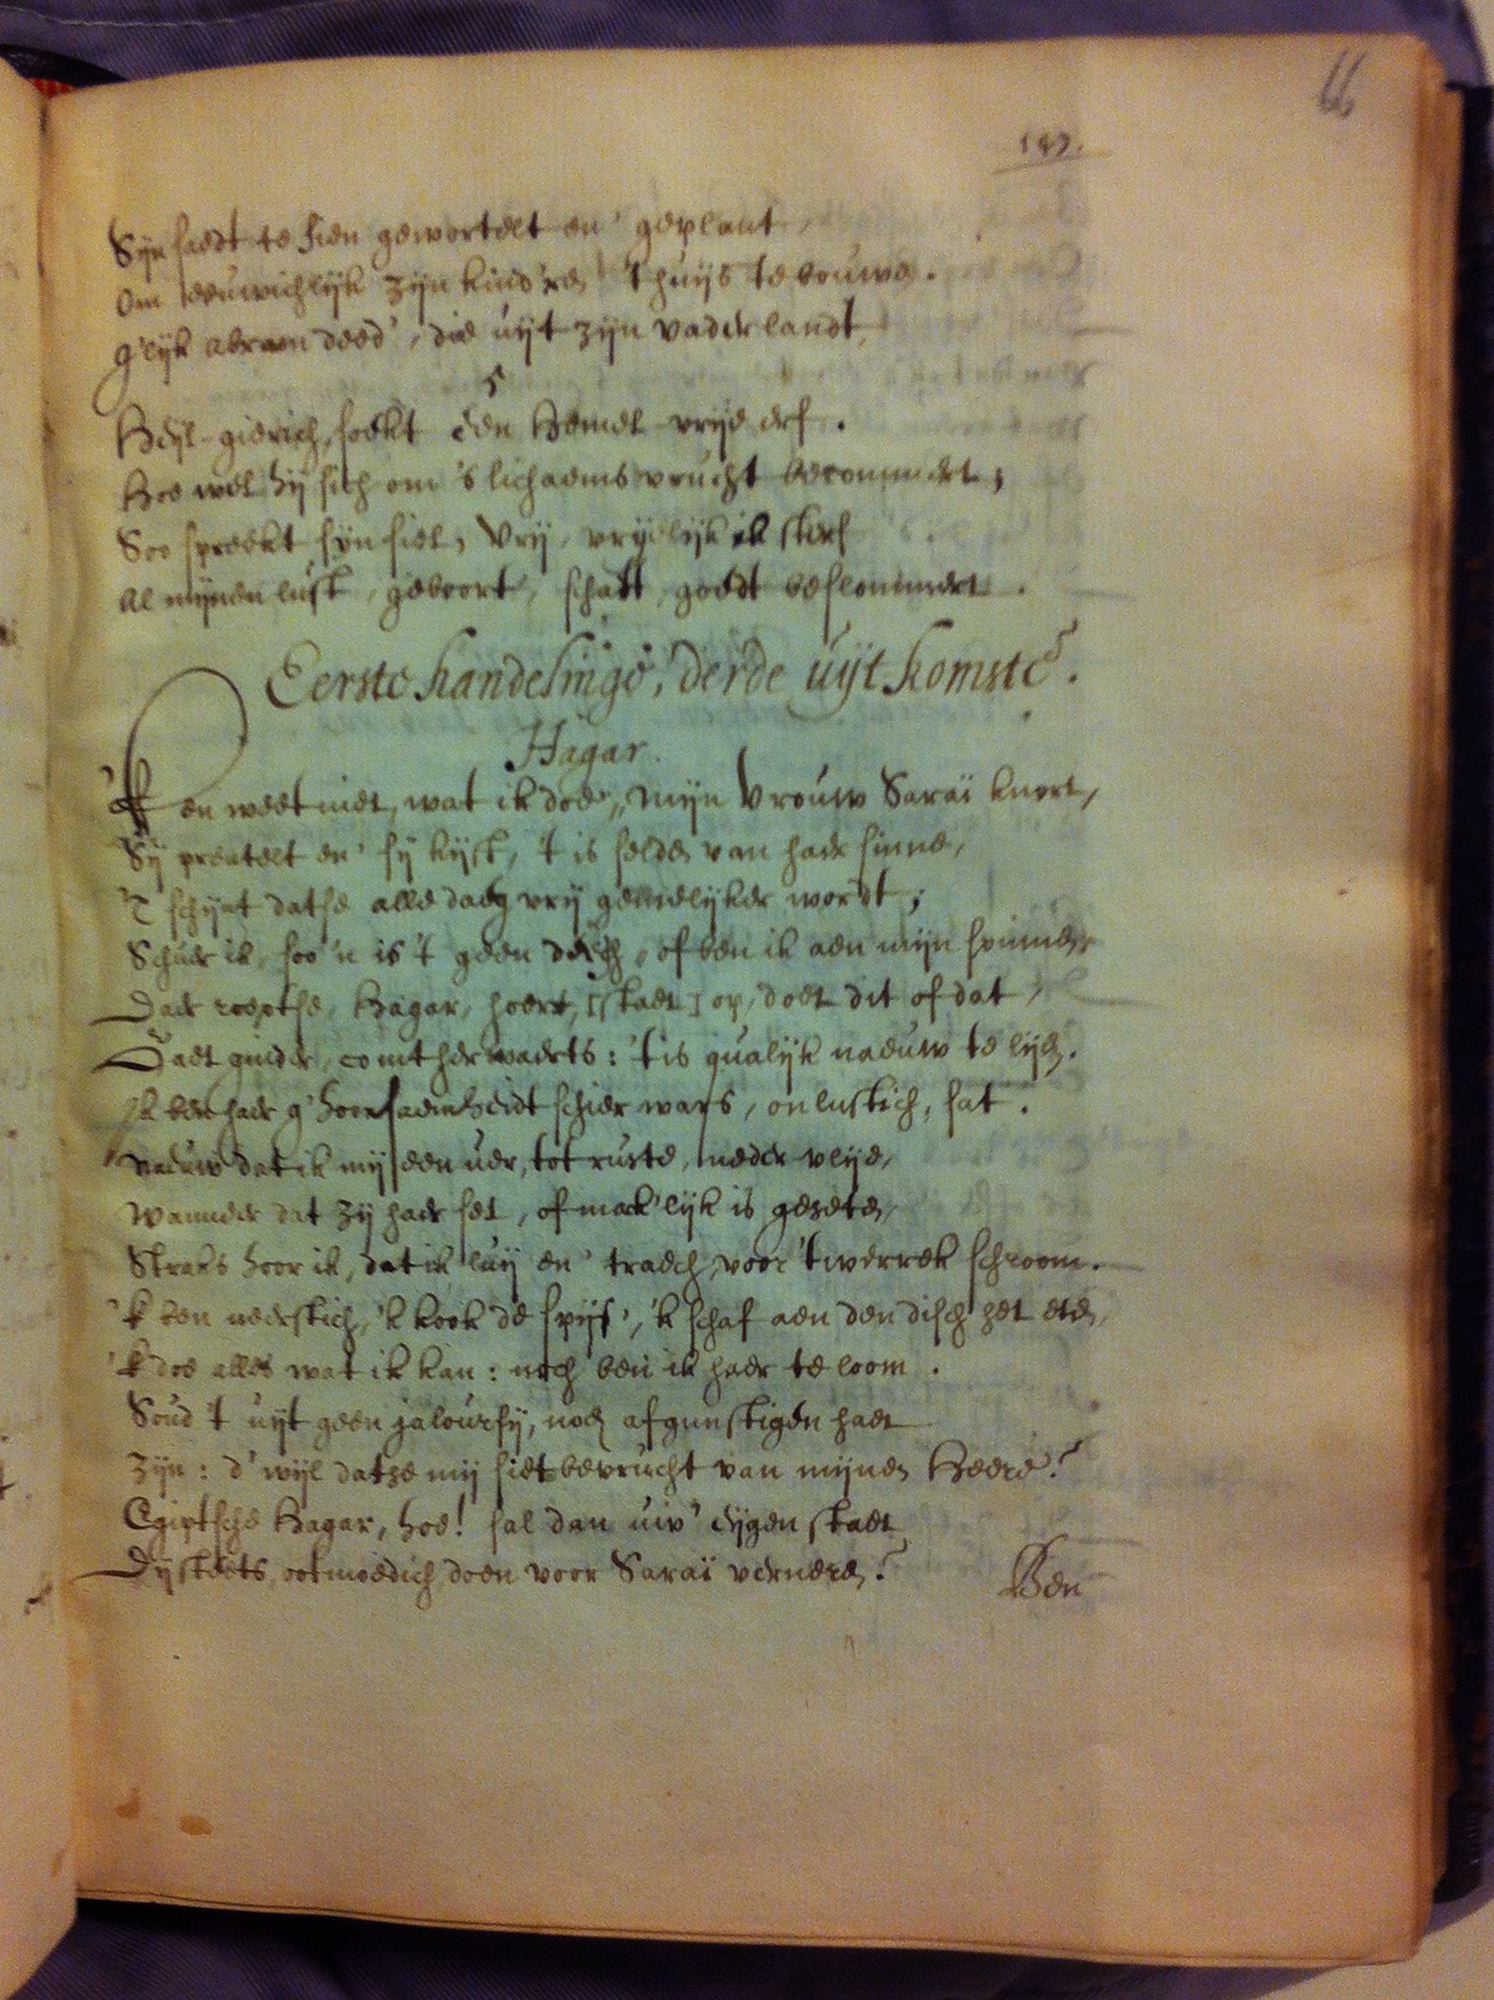 66
147.
Syn saedt te sien gewortelt en' geplant,
Om eeuwichlijk zijn kind'ren 't huijs te bouwen.
G'lijk abram deed', die uijt zijn vaderlandt,
5
Heijl-gierich, soekt een Hemel-vrije erf.
Hoe wel hij sich om 's lichaems vrucht becommert;
Soo spreekt sijn siel, Vrij, vrijelijk ik sterf
Al mijnen lust, geboort, schatt, goedt beslommert.
Eerste handelinge, derde uijtkomste.
Hagar.
'K en weet niet, wat ik doe, mijn Vrouw Saraï knort,
Sij preutelt en' sij kijft, 't is selden van haer sinne,
'T schijnt datse alle daeg vrij gemelijker wordt;
Schuer ik, soo 'n is 't geen deech, of ben ik aen mijn spinnen,
Daer roeptse, Hagar, hoort, [staet] op, doet dit of dat,
Gaet ginder, comt herwaerts: 't is qualijk naeuw te lijden.
Ik ben haer g'hoorsaemheidt schier wars, onlustich, sat.
Naeuw dat ik mij een uer, tot ruste, neder vlije,
Wanneer dat zij haer set, of mack'lijk is geseten,
Straks hoor ik, dat ik luij en' traech, voor 't werrek schroom.
'k ben neerstich, 'k kook de spijs', 'k schaf aen den disch het eten,
'k doe alles wat ik kan: noch ben ik haer te loom.
Soud 't uijt geen jalourfij, noch afgunstigen haet
Zijn: d'wijl datse mij siet bevrucht van mijnen Heere?
Egiptsche Hagar, hoe! sal dan uw' eijgen staet
Dij steets ootmoedich doen voor Saraï verneren?
Ben